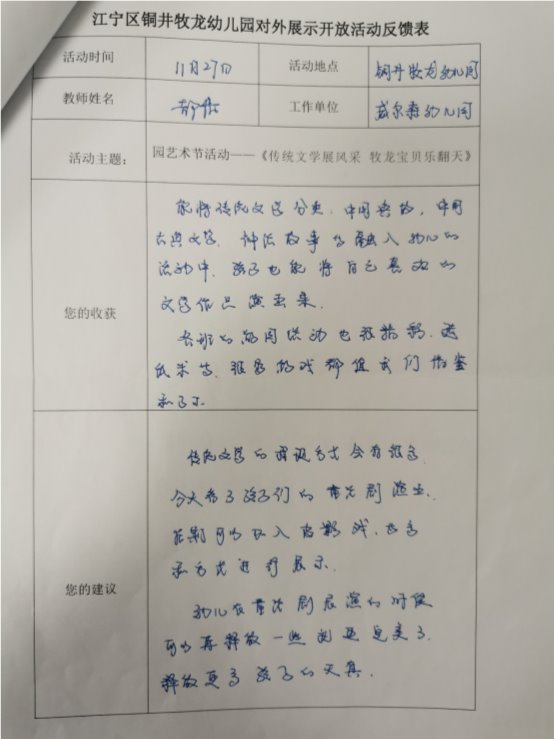 江宁区铜井牧龙幼儿园对外展示开放活动反馈表
活动时间 11月27日 活动地点 铜井牧龙幼儿园
教师姓名 工作单位 威尔森幼儿园
活动主题： 园艺术节活动——《传统文学展风采 牧龙宝贝乐翻天》
您的收获
能将传统文学分类，中国寓言，中国
古典文学，神话故事等融入幼儿的
活动中，孩子也能将自己喜欢的
文学作品演出来。
各班的 活动也很精彩，
等，很多游戏都值我们借鉴
和学习。
您的建议
传统文学的 形式会有很多
今天看了孩子们的 剧演出，
后期可以加入皮影戏， 多
种形式进行展示。
幼儿在 剧表演的时候
可以再释放一些 更美了，
释放更多孩子的天真。